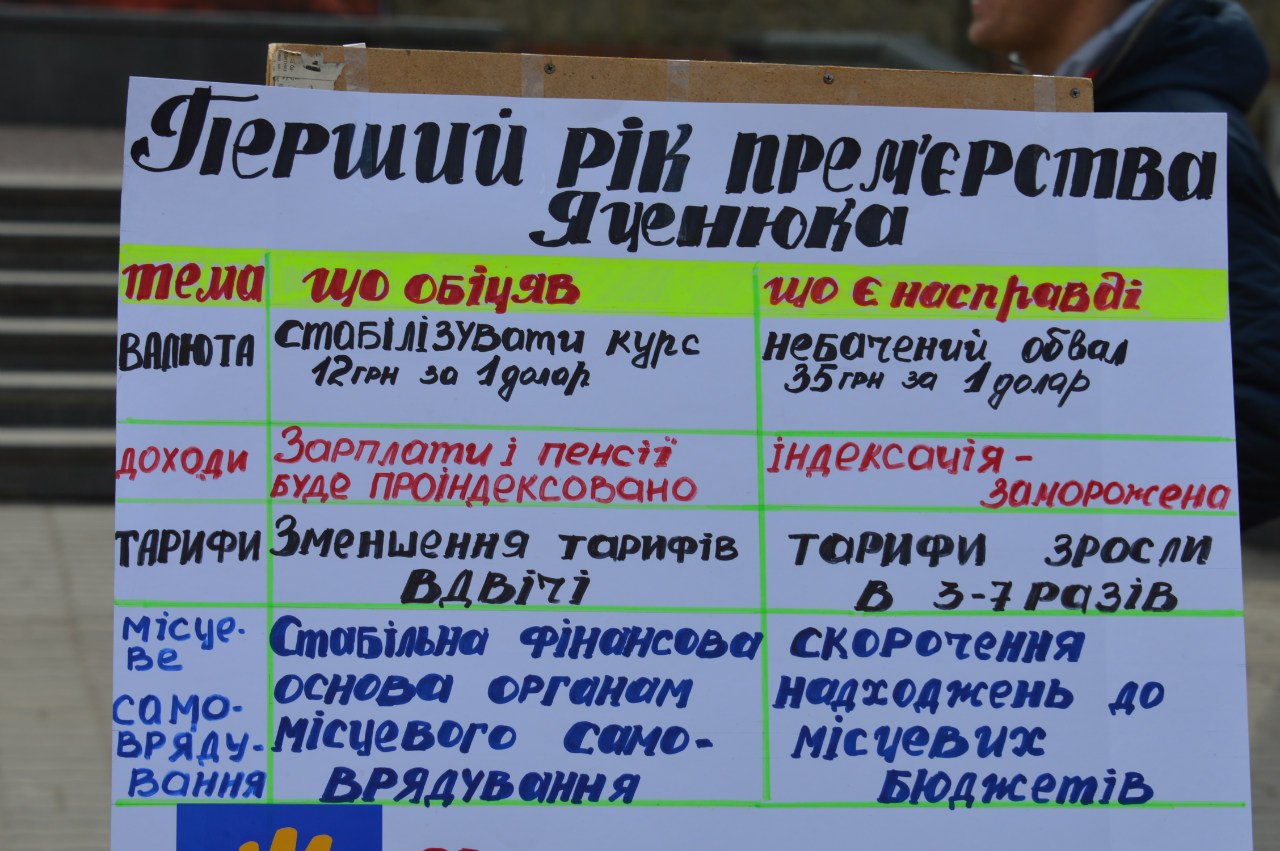 Перший рік прем'єрства
Яценюка
тема що обіцяв що є насправді
ВАЛЮТА стабілізувати курс небачений обвал
12грн за 1 долар 35грн за 1 долар
доходи Зарплати і пенсії індексація-
буде проіндексовано заморожена
ТАРИФИ Зменшення тарифів тарифи зросли
ВДВІЧІ в 3-7 разів
місце-
ве
само-
вряду-
вання
Стабільна фінансова
основа органам
місцевого само-
врядування
скорочення
надходжень до
місцевих
бюджетів